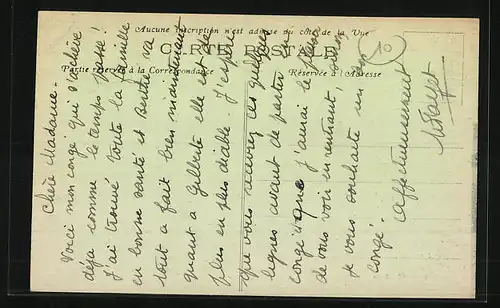 Aucune inscription n'est admise du côté de la Vue
CARTE POSTALE
Partie réservée à la Correspondance
Réservée à l'Adresse
Chère Madame.
Voici mon congé qui s'achève
déja comme le temps passe!
J'ai trouvé toute la famille
en bonne santé et Berthe va
tout a fait bien maintenant
quant a Gilberte elle est de
plus en plus diable. J'espère
que vous recevrez ces quelques
lignes avant de partir en
congé que j'aurai le plaisir
de vous voir en rentrant,
je vous souhaite un bon
congé.
Affectueusement